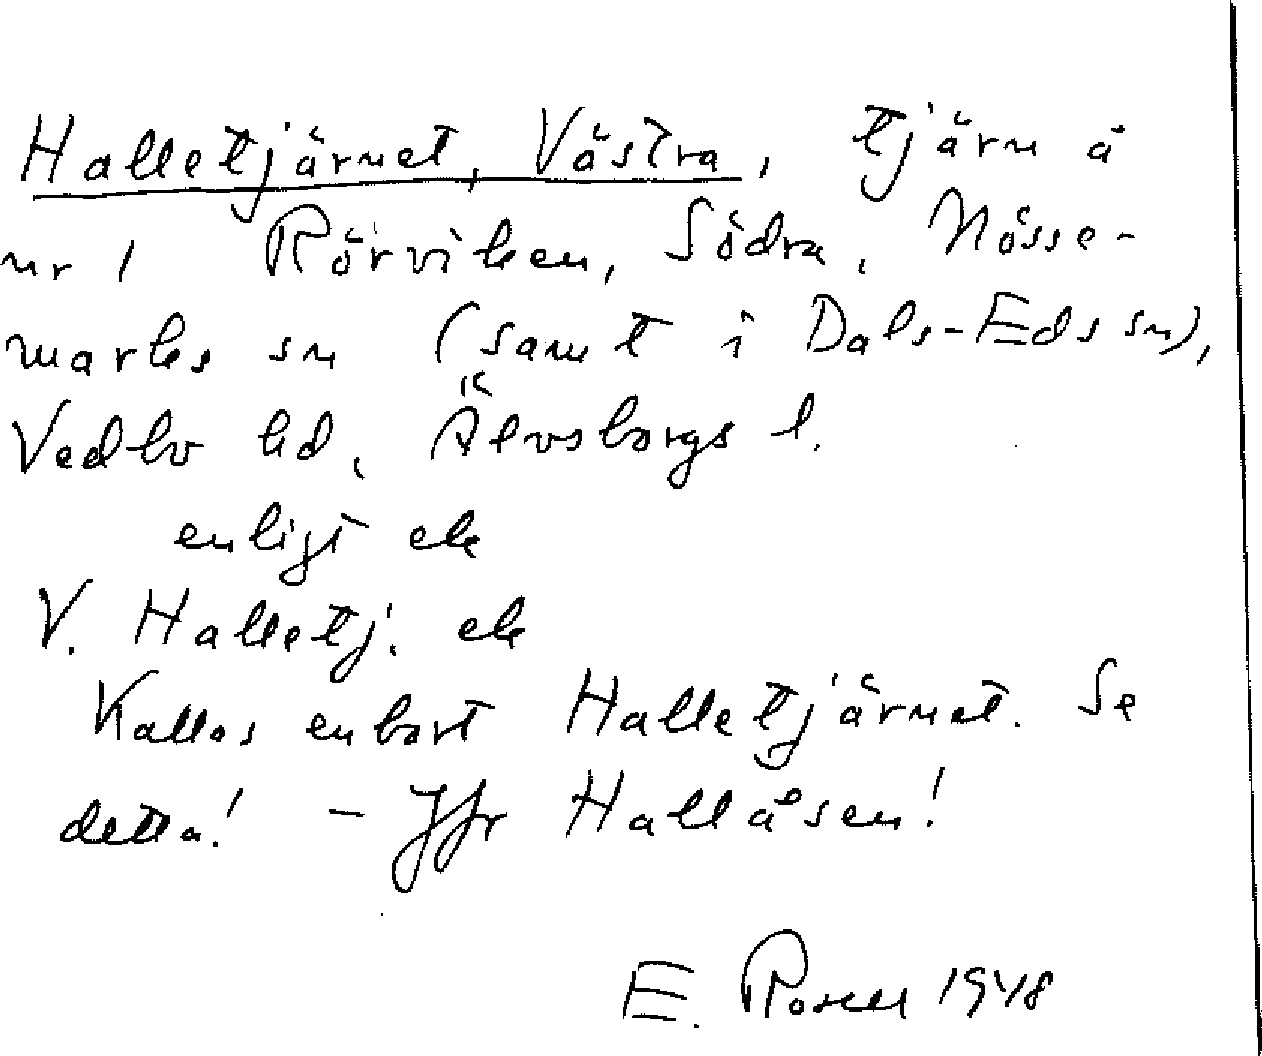 Halletjärnet, Västra, tjärn å
nr 1 Rörviken, Södra, Nösse-
marks sn (samt i Dals-Eds sn),
Vedbo hd, Älvsborgs l.
enligt ek
V. Halletj. ek
Kallas enbart Halletjärnet. Se
detta! - Jfr Hallåsen!
E. Rosell 1948